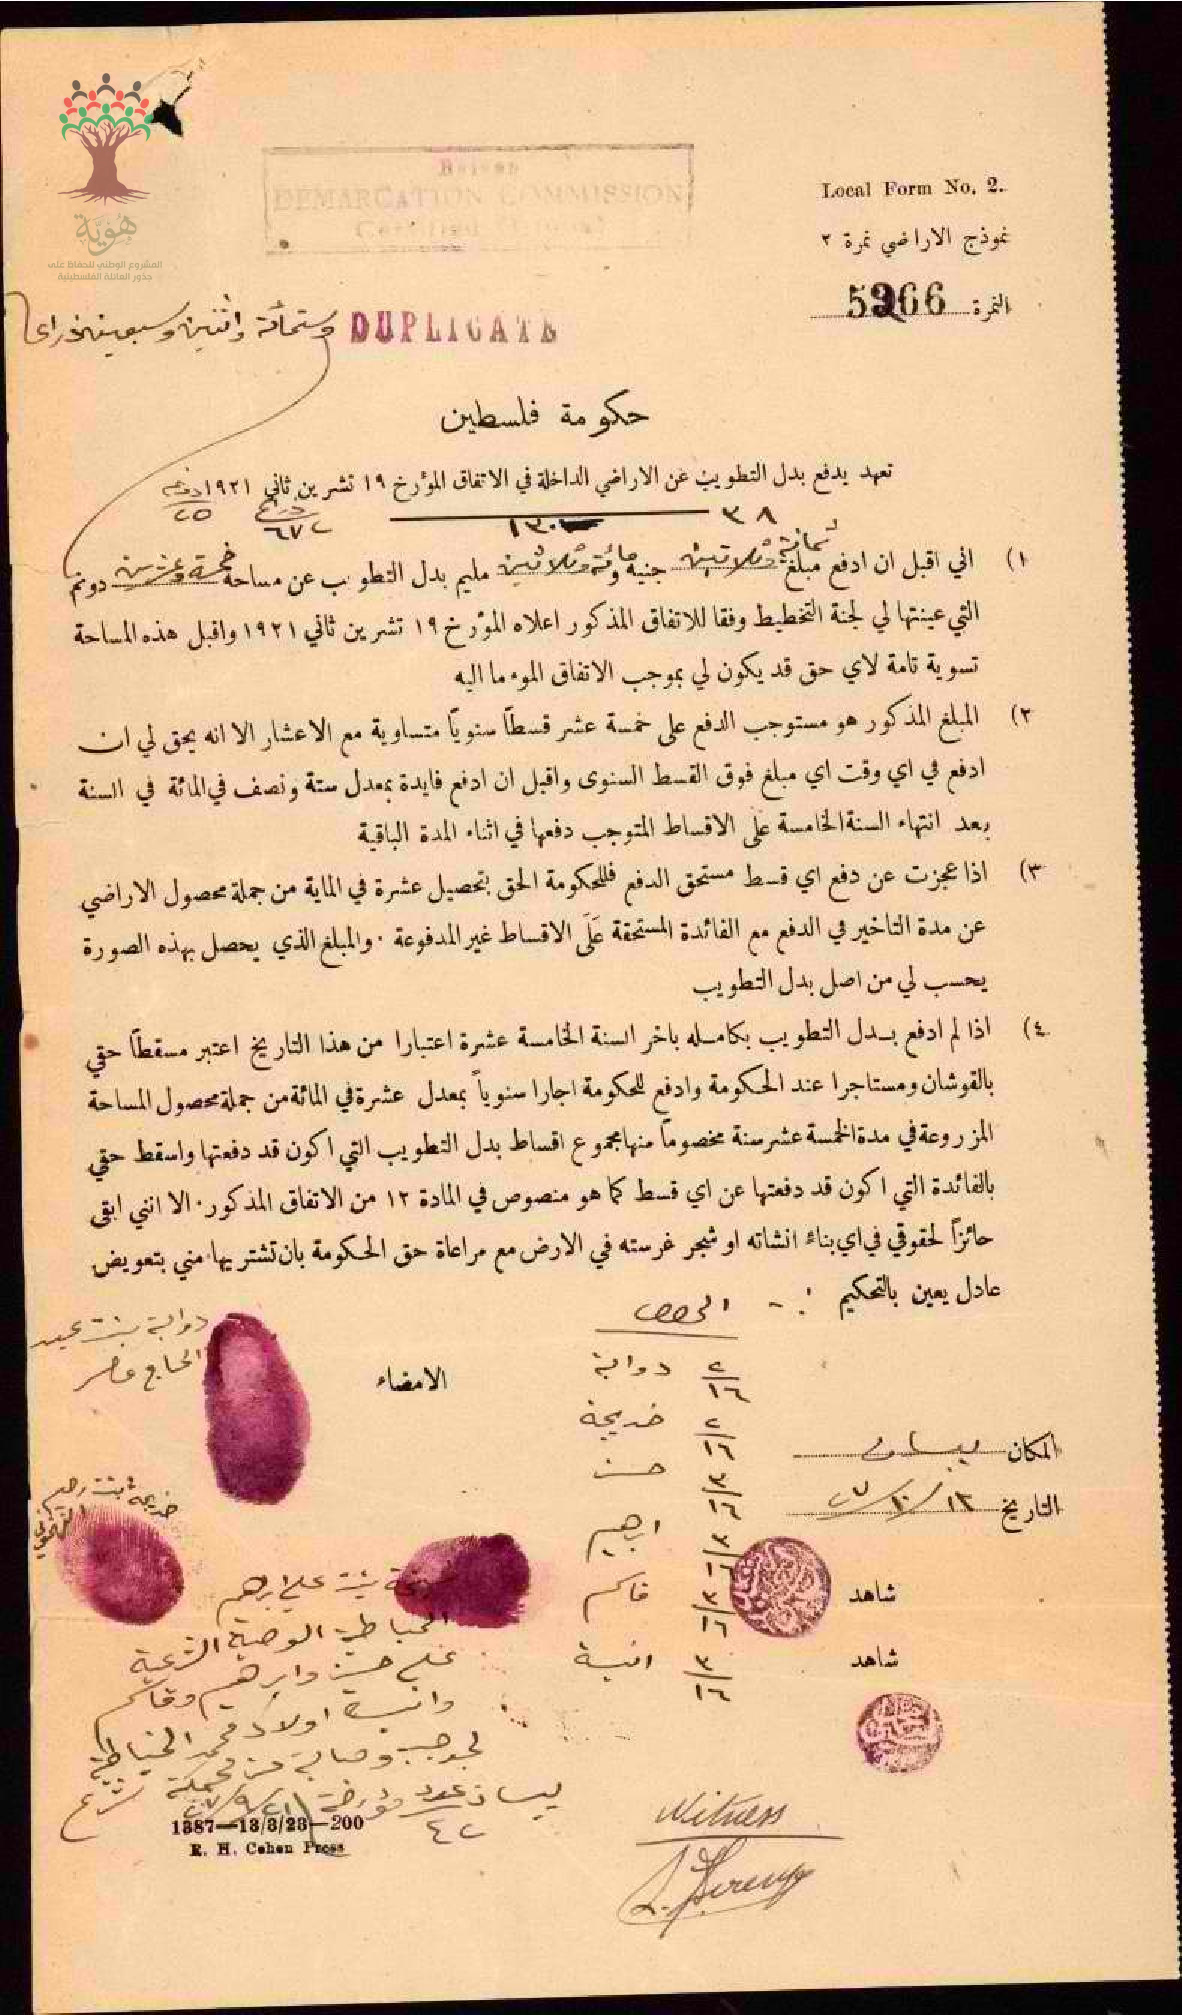 هُويَّة
المشروع الوطني للحفاظ على
جذور العائلة الفلسطينية
Beisan
DEMARCATION COMMISSION
Local Form No. 2.
نموذج الاراضي نمرة ٢
النمرة 5966
DUPLICATE
وستمائة واثنين وسبعين ذراعا
حكومة فلسطين
تعهد يدفع بدل التطويب عن الاراضي الداخلة في الاتفاق المؤرخ ١٩ تشرين ثاني ١٩٢١
دونم ٢٥
ذراع ٦٧٢
٣٨
١٣٠
١) اني اقبل ان ادفع مبلغ ثمانية وثلاثين جنيه ومائة وثلاثين مليم بدل التطويب عن مساحة خمسة وعشرين دونم
التي عينتها لي لجنة التخطيط وفقا للاتفاق المذكور اعلاه المؤرخ ١٩ تشرين ثاني ١٩٢١ واقبل هذه المساحة
تسوية تامة لاي حق قد يكون لي بموجب الاتفاق الموء ما اليه
٢) المبلغ المذكور هو مستوجب الدفع على خمسة عشر قسطاً سنوياً متساوية مع الاعشار الا انه يحق لي ان
ادفع في اي وقت اي مبلغ فوق القسط السنوى واقبل ان ادفع فايدة بمعدل ستة ونصف في المائة في السنة
بعد انتهاء السنة الخامسة على الاقساط المتوجب دفعها في اثناء المدة الباقية
٣) اذا عجزت عن دفع اي قسط مستحق الدفع فللحكومة الحق بتحصيل عشرة في الماية من جملة محصول الاراضي
عن مدة التاخير في الدفع مع الفائدة المستحقة عَلَى الاقساط غير المدفوعة . والمبلغ الذي يحصل بهذه الصورة
يحسب لي من اصل بدل التطويب
٤) اذا لم ادفع بدل التطويب بكامله باخر السنة الخامسة عشرة اعتبارا من هذا التاريخ اعتبر مسقطاً حقي
بالقوشان ومستاجرا عند الحكومة وادفع للحكومة اجارا سنوياً بمعدل عشرة في المائة من جملة محصول المساحة
المزروعة في مدة الخمسة عشر سنة مخصوماً منها مجموع اقساط بدل التطويب التي اكون قد دفعتها واسقط حقي
بالفائدة التي اكون قد دفعتها عن اي قسط كما هو منصوص في المادة ١٢ من الاتفاق المذكور . الا انني ابقى
حائزاً لحقوقي في اي بناء انشاته او شجر غرسته في الارض مع مراعاة حق الحكومة بان تشتريها مني بتعويض
عادل يعين بالتحكيم
الحصص
٢/١٦ دوابة
٢/١٦ خديجة
٣/١٦ حسن
٣/١٦ ابرهيم
٣/١٦ قاسم
٣/١٦ انيسة
الامضاء
دوابة بنت
الحاج
خديجة بنت
بنت علي ابرهيم
الوصية الشرعية
على حسن وابرهيم وقاسم
وانيسة اولاد محمد
بموجب وصاية من محكمة شرع
بيسان عدد ٤٢ مؤرخة ٢١/٩/٢٧
المكان بيسان
التاريخ ١٢/١٠/٢٧
شاهد
شاهد
1387—13/3/23—200
R. H. Cohen Press
Witness